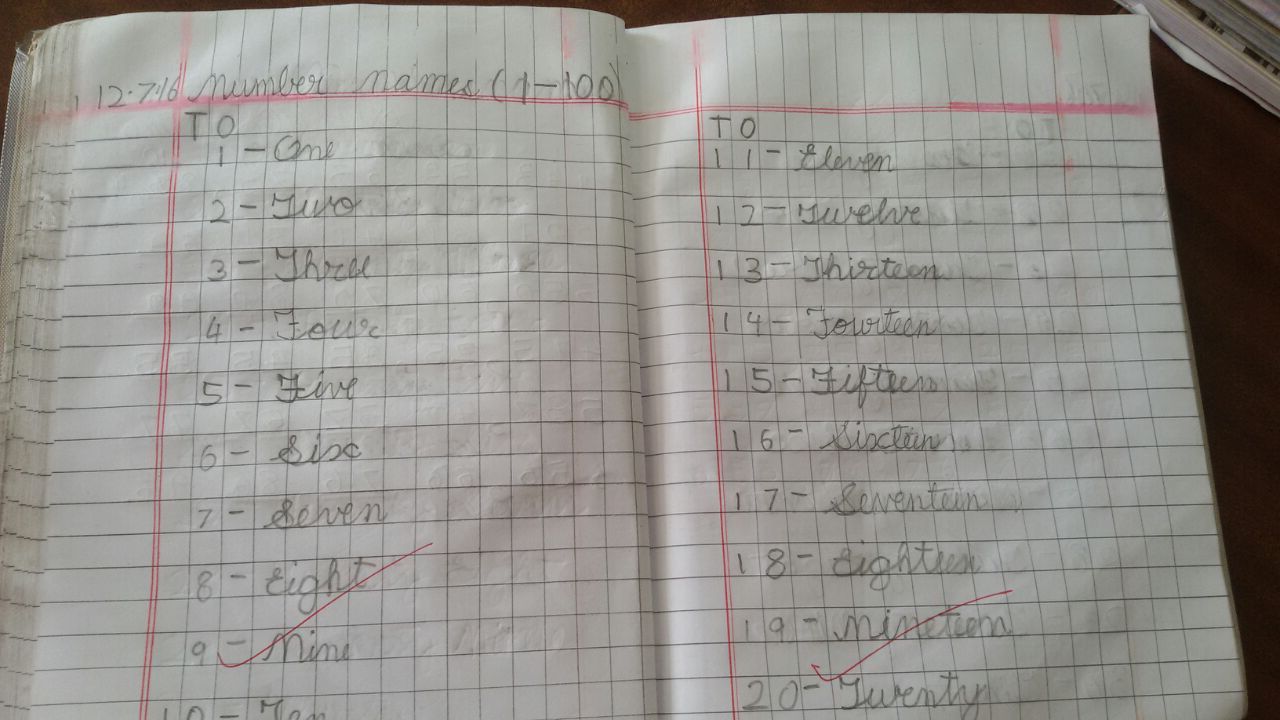 12.7.16 Number names (1-100)
T O
1 - One
2 - Two
3 - Three
4 - Four
5 - Five
6 - Six
7 - Seven
8 - Eight
9 - Nine
10 - Ten
T O
11 - Eleven
12 - Twelve
13 - Thirteen
14 - Fourteen
15 - Fifteen
16 - Sixteen
17 - Seventeen
18 - Eighteen
19 - Nineteen
20 - Twenty